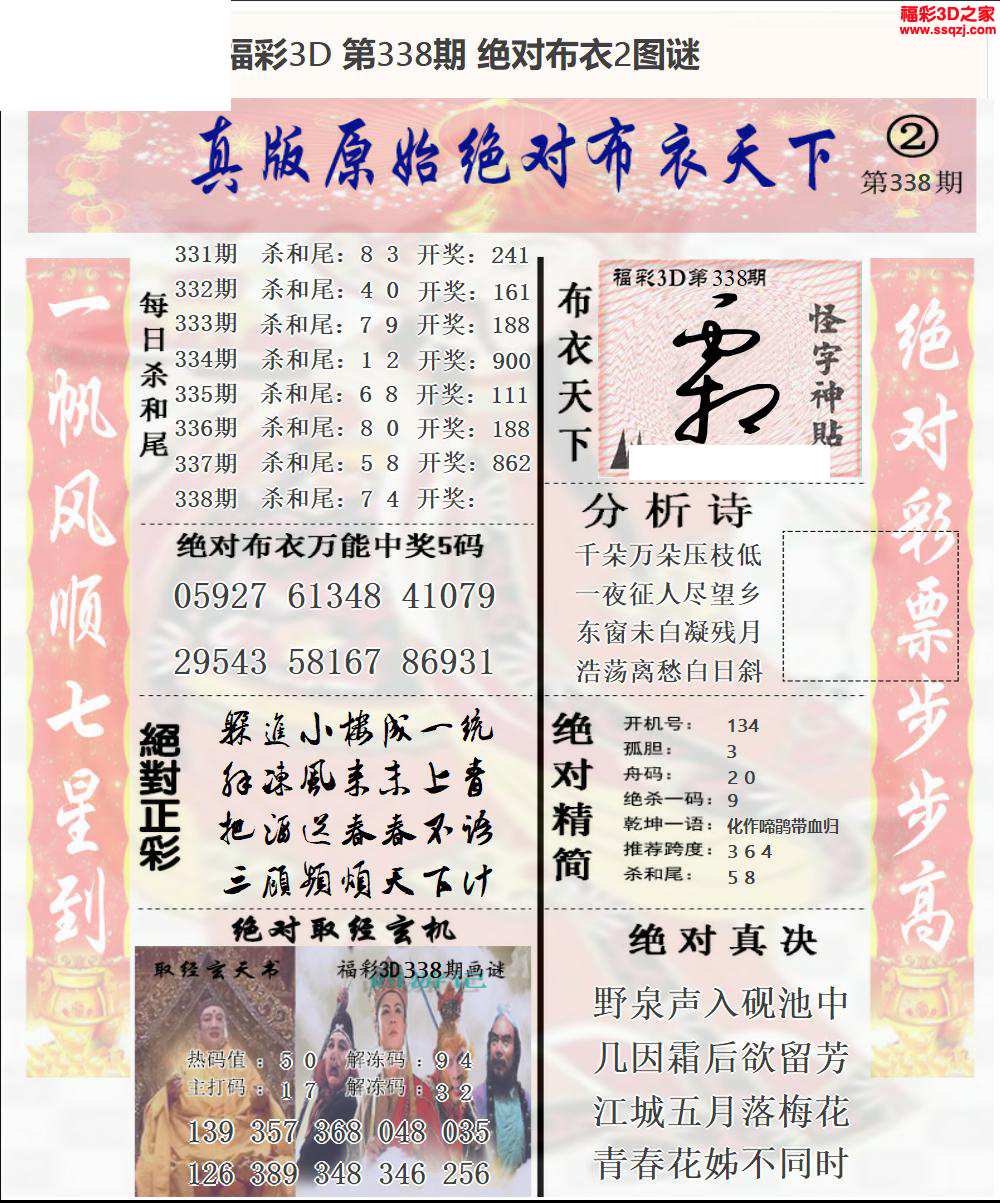 福彩3D之家
www.ssqzj.com
福彩3D 第338期 绝对布衣2图谜
真版原始绝对布衣天下
②
第338期
一帆风顺七星到
每日杀和尾
331期 杀和尾：8 3 开奖：241
332期 杀和尾：4 0 开奖：161
333期 杀和尾：7 9 开奖：188
334期 杀和尾：1 2 开奖：900
335期 杀和尾：6 8 开奖：111
336期 杀和尾：8 0 开奖：188
337期 杀和尾：5 8 开奖：862
338期 杀和尾：7 4 开奖：
绝对布衣万能中奖5码
05927 61348 41079
29543 58167 86931
絕對正彩
躲進小樓成一统
解凍風来未上青
把酒送春春不语
三顾頻煩天下计
绝对取经玄机
取经玄天书
福彩3D338期画谜
热码值：5 0 解冻码：9 4
主打码：1 7 解冻码：3 2
139 357 368 048 035
126 389 348 346 256
布衣天下
福彩3D第338期
怪字神貼
分析诗
千朵万朵压枝低
一夜征人尽望乡
东窗未白凝残月
浩荡离愁白日斜
绝对精简
开机号： 134
孤胆： 3
舟码： 2 0
绝杀一码： 9
乾坤一语： 化作啼鹃带血归
推荐跨度： 3 6 4
杀和尾： 5 8
绝对真决
野泉声入砚池中
几因霜后欲留芳
江城五月落梅花
青春花姊不同时
绝对彩票步步高